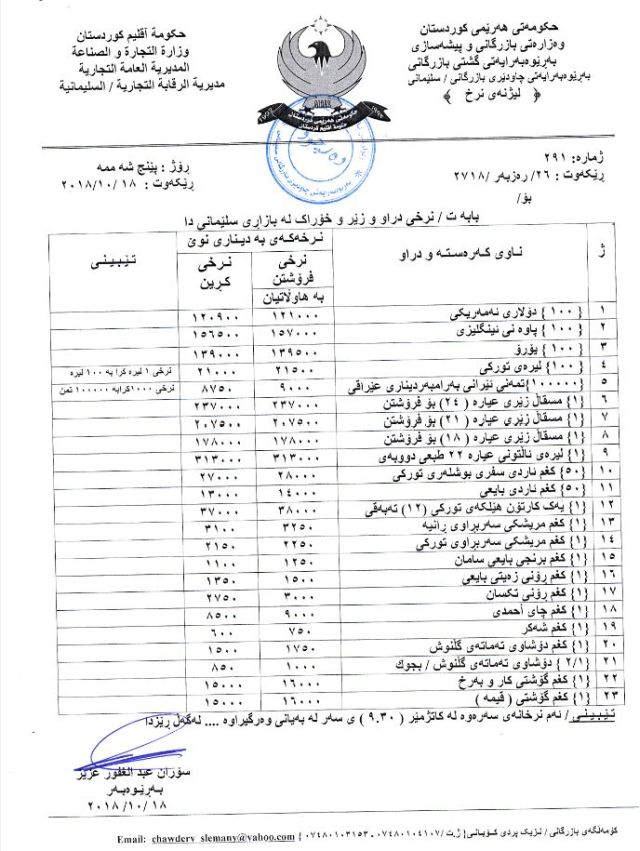 حكومەتی هەرێمی كوردستان
وەزارەتی بازرگانی و پیشەسازی
بەڕێوەبەرایەتی گشتی بازرگانی
بەڕێوەبەرایەتی چاودێری بازرگانی / سلێمانی
﴿ لیژنەی نرخ ﴾
حكومة أقليم كوردستان
وزارة التجارة و الصناعة
المديرية العامة التجارية
مديرية الرقابة التجارية / السليمانية
ژمارە: ٢٩١
ڕێكەوت : ٢٦/ رەزبەر /٢٧١٨
بۆ/
رۆژ : پێنج شە ممە
ڕێكەوت : ١٨ /٢٠١٨/١٠
بابە ت / نرخی دراو و زێر و خۆراك لە بازاڕی سلێمانی دا
ژ ناوی كەرەستە و دراو نرخەكەی بە دیناری نوێ تێبینی
نرخی فرۆشتن بە هاوڵاتیان نرخی كڕین
١ {١٠٠} دۆلاری ئەمەریكی ١٢١٠٠٠ ١٢٠٩٠٠
٢ {١٠٠} پاوە نی ئینگلیزی ١٥٧٠٠٠ ١٥٦٥٠٠
٣ {١٠٠} یۆرۆ ١٣٩٥٠٠ ١٣٩٠٠٠
٤ {١٠٠} لیرەی توركی ٢١٥٠٠ ٢١٠٠٠ نرخی ١ لیرە كرا بە ١٠٠ لیرە
٥ {١٠٠٠٠٠}تمەنی ئێرانی بەرامبەردیناری عێراقی ٩٠٠٠ ٨٧٥٠ نرخی ١٠٠٠كرابە ١٠٠٠٠٠ تمن
٦ {١} مسقاڵ زێری عیارە ( ٢٤ ) بۆ فرۆشتن ٢٣٧٠٠٠ ٢٣٧٠٠٠
٧ {١} مسقاڵ زێری عیارە ( ٢١ ) بۆ فرۆشتن ٢٠٧٥٠٠ ٢٠٧٥٠٠
٨ {١} مسقاڵ زێری عیارە ( ١٨ ) بۆ فرۆشتن ١٧٨٠٠٠ ١٧٨٠٠٠
٩ {١} لیرەی ئاڵتونی عیارە ٢٢ طبعی دووبەی ٣١٣٠٠٠ ٣١٣٠٠٠
١٠ {٥٠} كغم ئاردی سفری بوشلەری توركی ٢٨٠٠٠ ٢٧٠٠٠
١١ {٥٠} كغم ئاردی بایعی ١٤٠٠٠ ١٣٠٠٠
١٢ {١} یەك كارتۆن هێلكەی توركی (١٢) تەبەقی ٣٨٠٠٠ ٣٧٠٠٠
١٣ {١} كغم مریشكی سەربڕاوی ڕانیە ٣٢٥٠ ٣١٠٠
١٤ {١} كغم مریشكی سەربڕاوی توركی ٢٢٥٠ ٢١٥٠
١٥ {١} كغم برنجی بایعی سامان ١٢٥٠ ١١٠٠
١٦ {١} كغم ڕۆنی زەیتی بایعی ١٥٠٠ ١٣٥٠
١٧ {١} كغم ڕۆنی تكسان ٣٠٠٠ ٢٧٥٠
١٨ {١} كغم چای أحمدی ٩٠٠٠ ٨٥٠٠
١٩ {١} كغم شەكر ٧٥٠ ٦٠٠
٢٠ {١} كغم دۆشاوی تەماتەی گڵنوش ١٧٥٠ ١٥٠٠
٢١ {٢/١} دۆشاوی تەماتەی گڵنوش / بجوك ١٠٠٠ ٨٥٠
٢٢ {١} كغم گۆشتی كار و بەرخ ١٦٠٠٠ ١٥٠٠٠
٢٣ {١} كغم گۆشتی ( قیمە ) ١٦٠٠٠ ١٥٠٠٠
تێبینی/ ئەم نرخانەی سەرەوە لە كاتژمێر ( ٩.٣٠ ) ی سەر لە بەیانی وەرگیراوە .... لەگەڵ ڕێزدا
سۆران عبد الغفور عزیز
بەڕێوەبەر
٢٠١٨/١٠/١٨
كۆمەڵگەی بازرگانی / نزیك پردی كۆبانی} ژ.ت /٠٧٤٨٠١٠٤١٠٧ - ٠٧٤٨٠١٠٣١٥٣ {
Email: chawdery_slemany@yahoo.com